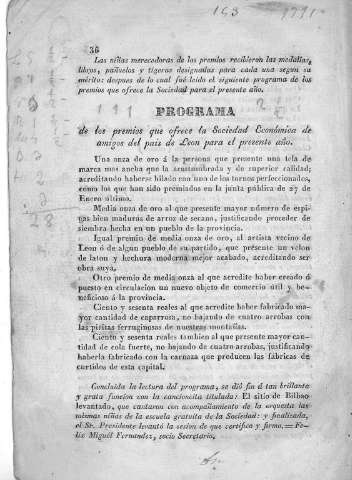 36
Las niñas merecedoras de los premios recibieron las medallas,
libros, pañuelos y tigeras designadas para cada una segun su
mérito: despues de lo cual fué leido el siguiente programa de los
premios que ofrece la Sociedad para el presente año.
PROGRAMA
de los premios que ofrece la Sociedad Económica de
amigos del pais de Leon para el presente año.
Una onza de oro á la persona que presente una tela de
marca mas ancha que la acostumbrada y de superior calidad;
acreditando haberse hilado con uno de los tornos perfeccionados,
como los que han sido premiados en la junta pública de 27 de
Enero último.
Media onza de oro al que presente mayor número de espi-
gas bien maduras de arroz de secano, justificando proceder de
siembra hecha en un pueblo de la provincia.
Igual premio de media onza de oro, al artista vecino de
Leon ó de algun pueblo de su partido, que presente un velon
de laton y hechura moderna mejor acabado, acreditando ser
obra suya.
Otro premio de media onza al que acredite haber creado ó
puesto en circulacion un nuevo objeto de comercio útil y be-
neficioso á la provincia.
Ciento y sesenta reales al que acredite haber fabricado ma-
yor cantidad de caparrosa, no bajando de cuatro arrobas con
las piritas ferruginosas de nuestras montañas.
Ciento y sesenta reales tambien al que presente mayor can-
tidad de cola fuerte, no bajando de cuatro arrobas, justificando
haberla fabricado con la carnaza que producen las fábricas de
cortidos de esta capital.
Concluida la lectura del programa, se dió fin á tan brillante
y grata funcion con la cancioncita titulada: El sitio de Bilbao
levantado, que cantaron con acompañamiento de la orquesta las
mismas niñas de la escuela gratuita de la Sociedad: y finalizada,
el Sr. Presidente levantó la sesion de que certifico y firmo.=Fe-
lix Miguel Fernandez, socio Secretario.